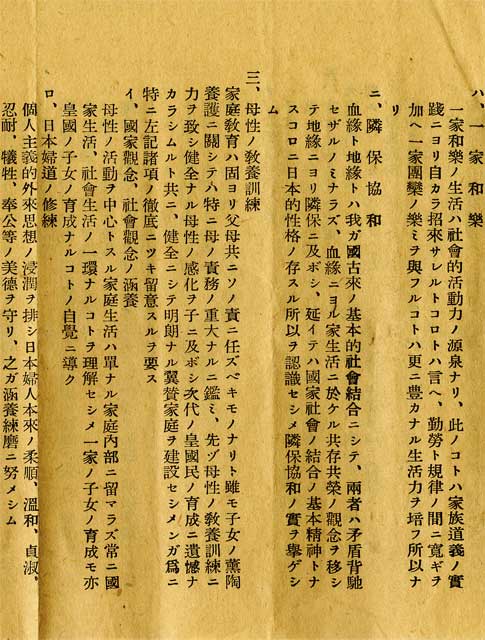 ハ、一家和樂
一家和樂ノ生活ハ社會的活動力ノ源泉ナリ、此ノコトハ家族道義ノ實
踐ニヨリ自カラ招來サレルトコロトハ言ヘ、勤勞ト規律ノ間ニ寬ギヲ
加ヘ一家團欒ノ樂ミヲ與フルコトハ更ニ豊カナル生活力ヲ培フ所以ナ
リ
ニ、隣保協和
血緣ト地緣トハ我ガ國古來ノ基本的社會結合ニシテ、兩者ハ矛盾背馳
セザルノミナラズ、血緣ニヨル家生活ニ於ケル共存共榮ノ觀念ヲ移シ
テ地緣ニヨリ隣保ニ及ボシ、延イテハ國家社會ノ結合ノ基本精神トナ
スコロニ日本的性格ノ存スル所以ヲ認識セシメ隣保協和ノ實ヲ擧ゲシ
ム
三、母性ノ敎養訓練
家庭敎育ハ固ヨリ父母共ニソノ責ニ任ズベキモノナリト雖モ子女ノ薰陶
養護ニ關シテハ特ニ母ノ責務ノ重大ナルニ鑑ミ、先ヅ母性ノ敎養訓練ニ
力ヲ致シ健全ナル母性ノ感化ヲ子ニ及ボシ次代ノ皇國民ノ育成ニ遺憾ナ
カラシムルト共ニ、健全ニシテ明朗ナル翼贊家庭ヲ建設セシメンガ爲ニ
特ニ左記諸項ノ徹底ニツキ留意スルヲ要ス
イ、國家觀念、社會觀念ノ涵養
母性ノ活動ヲ中心トスル家庭生活ハ單ナル家庭內部ニ留マラズ常ニ國
家生活、社會生活ノ一環ナルコトヲ理解セシメ一家ノ子女ノ育成モ亦
皇國ノ子女ノ育成ナルコトノ自覺ニ導ク
ロ、日本婦道ノ修練
個人主義的外來思想ノ浸潤ヲ排シ日本婦人本來ノ柔順、溫和、貞淑、
忍耐、犧牲、奉公等ノ美德ヲ守リ、之ガ涵養練磨ニ努メシム